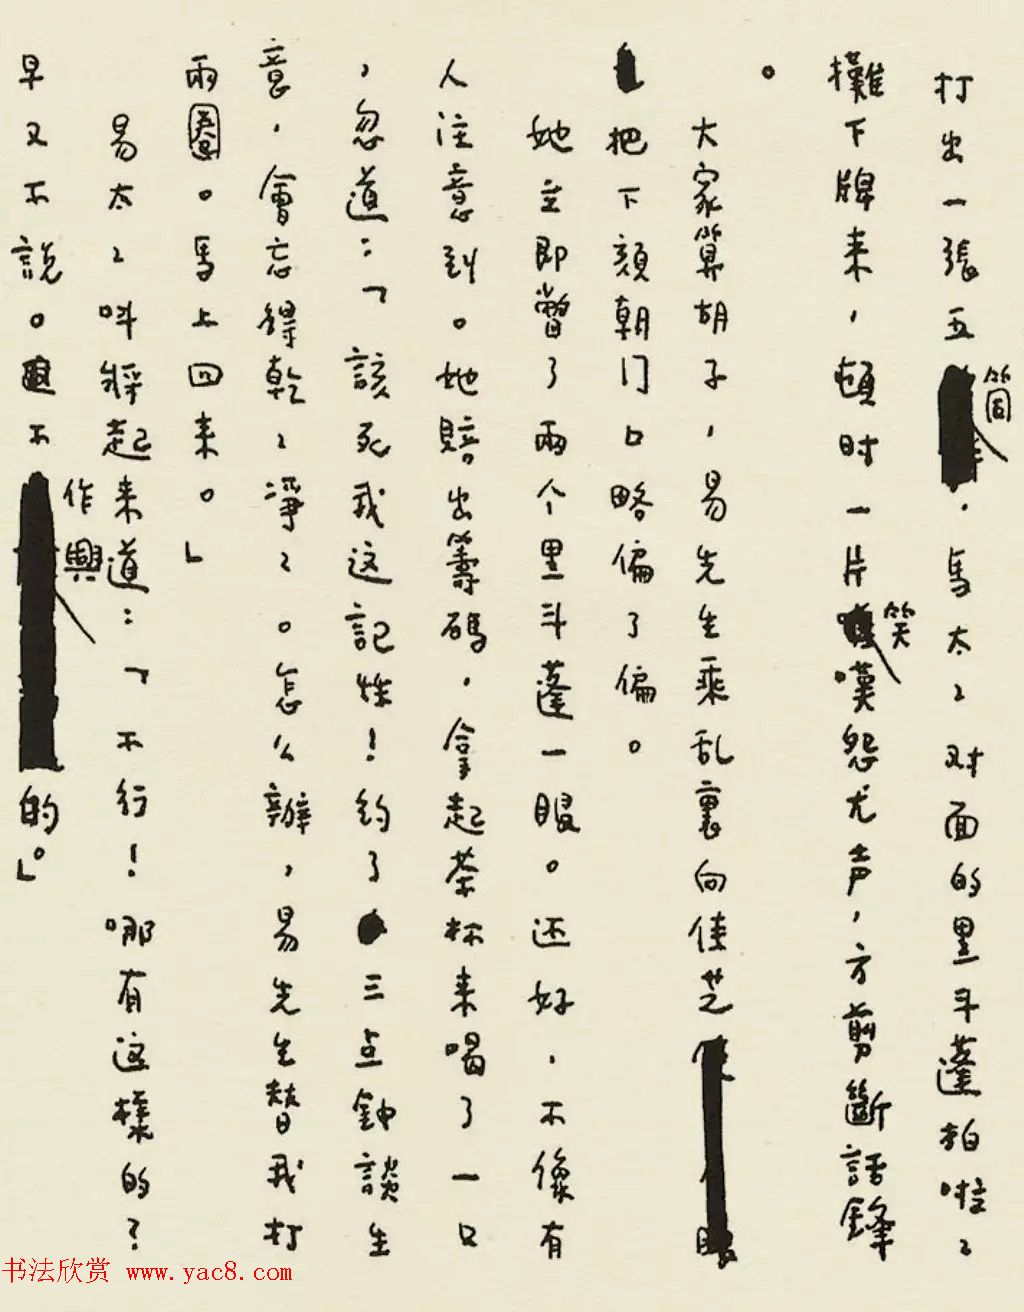 打出一張五筒，馬太〻对面的黑斗蓬拍啦〻
攤下牌来，頓时一片笑嘆怨尤声，方剪斷話鋒
。
大家算胡子，易先生乘乱裏向佳芝
把下頦朝门口略偏了偏。
她立即瞥了兩个黑斗蓬一眼。还好，不像有
人注意到。她賠出籌碼，拿起茶杯来喝了一口
，忽道：「該死我这記性！約了三点鈡談生
意，會忘得乾〻淨〻。怎么辦，易先生替我打
兩圈。馬上回来。」
易太〻呌將起来道：「不行！哪有这樣的？
早又不說。不作興的。」
书法欣赏 www.yac8.com